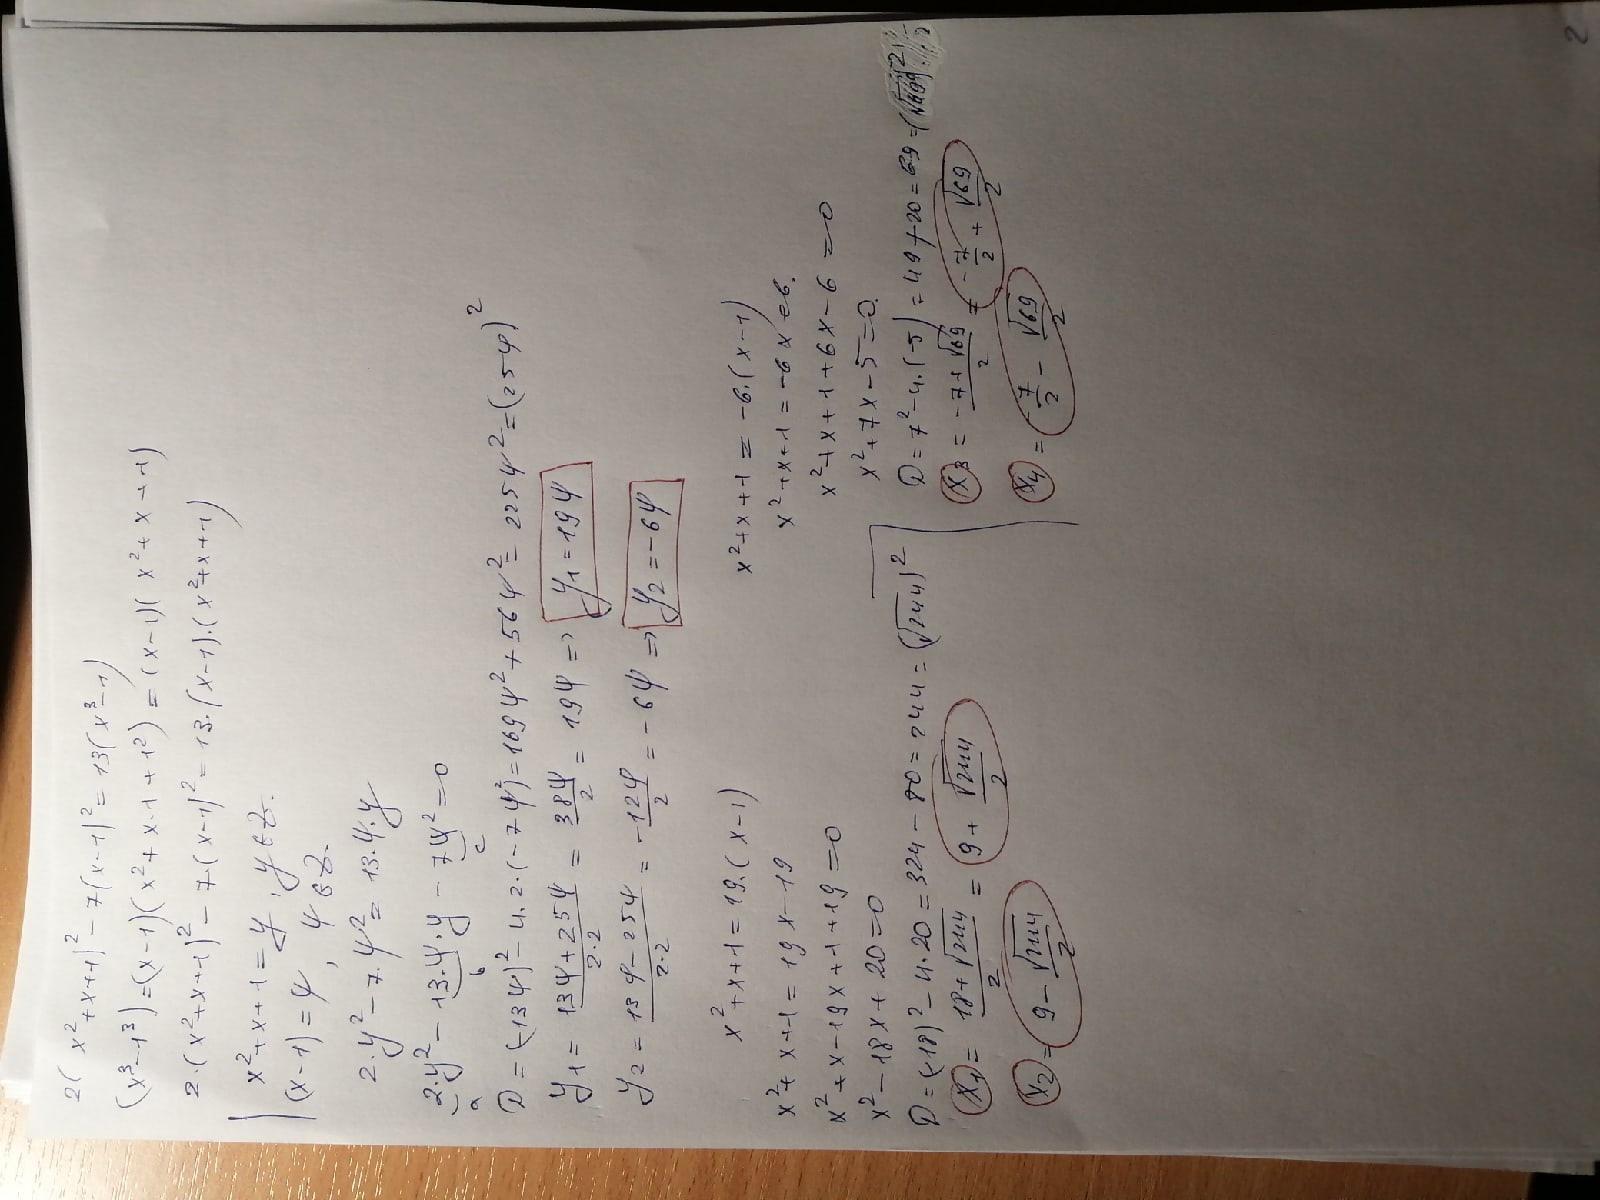 2(x²+x+1)²-7(x-1)²=13(x³-1)
(x³-1³)=(x-1)(x²+x·1+1²)=(x-1)(x²+x+1)
2·(x²+x+1)²-7(x-1)²=13·(x-1)·(x²+x+1)
x²+x+1=y, y∈Z.
(x-1)=ψ, ψ∈Z.
2·y²-7·ψ²=13·ψ·y
2·y²-13·ψ·y-7ψ²=0
a b c
D=(-13ψ)²-4·2·(-7ψ²)=169ψ²+56ψ²=225ψ²=(25ψ)²
y₁=13ψ+25ψ/2·2=38ψ/2=19ψ=>y₁=19ψ
y₂=13ψ-25ψ/2·2=-12ψ/2=-6ψ=>y₂=-6ψ
x²+x+1=19·(x-1)
x²+x+1=19x-19
x²+x-19x+1+19=0
x²-18x+20=0
D=(-18)²-4·20=324-80=244=(√244)²
x₁=18+√244/2=9+√244/2
x₂=9-√244/2
x²+x+1=-6·(x-1)
x²+x+1=-6x+6.
x²+x+1+6x-6=0
x²+7x-5=0.
D=7²-4·(-5)=49+20=69=
x₃=-7+√69/2=-7/2+√69/2
x₄=-7/2-√69/2
2